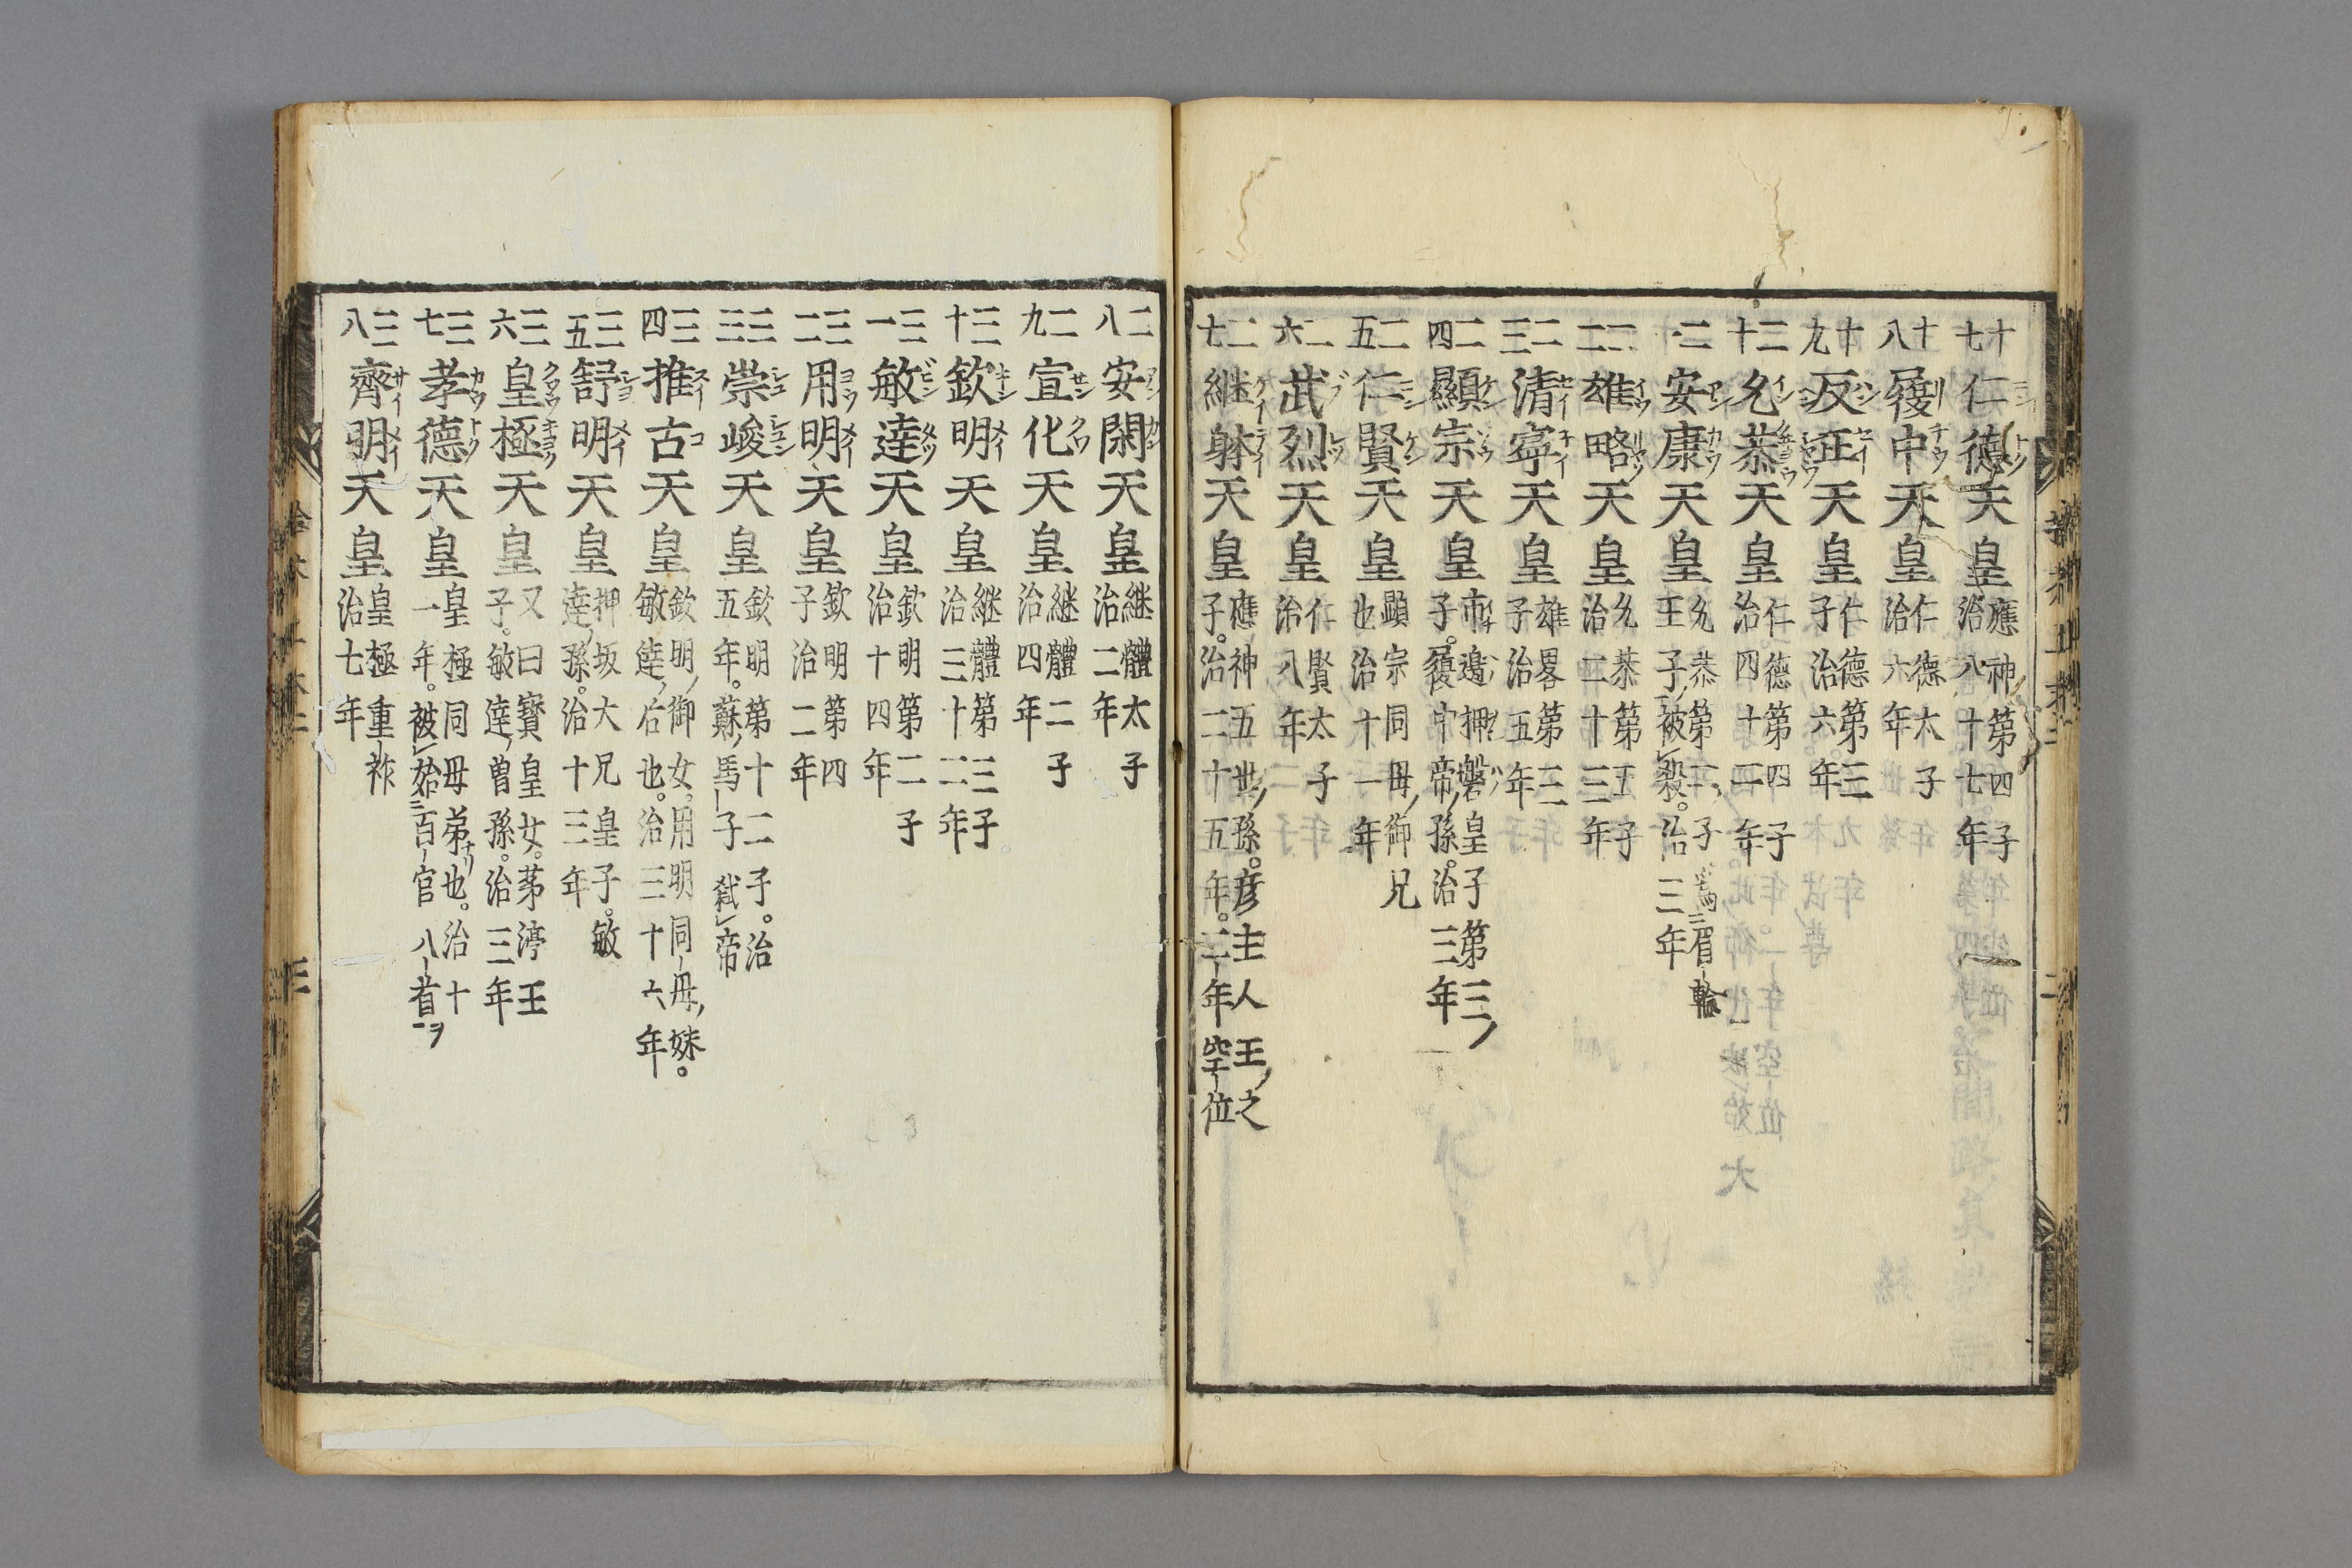 十七仁德天皇應神第四子治八十七年
十八履中天皇仁德太子治六年
十九反正天皇仁德第三子治六年
二十允恭天皇仁德第四子治四十二年
二一安康天皇允恭第二子王子被殺。治三年眉輪
二二雄略天皇允恭第五子治二十三年
二三清寧天皇雄畧第三子治五年
二四顯宗天皇市邊押磐皇子第三子。履中帝孫。治三年
二五仁賢天皇顕宗同母御兄也治十一年
二六武烈天皇仁賢太子治八年
二七継躰天皇應神五世孫。彦主人王之子。治二十五年。二年空位
二八安閑天皇継體太子治二年
二九宣化天皇継體二子治四年
三十欽明天皇継體第三子治三十二年
三一敏達天皇欽明第二子治十四年
三二用明天皇欽明第四子治二年
三三崇峻天皇欽明第十二子。治五年。蘇馬子弑帝
三四推古天皇欽明御女。用明同母妹。敏達后也。治三十六年
三五舒明天皇押坂大兄皇子。敏達孫。治十三年
三六皇極天皇又曰寳皇女。茅渟王子。敏達曽孫。治三年
三七孝德天皇皇極同母弟也。治十一年。被始百官八省
三八齊明天皇皇極重祚治七年
三